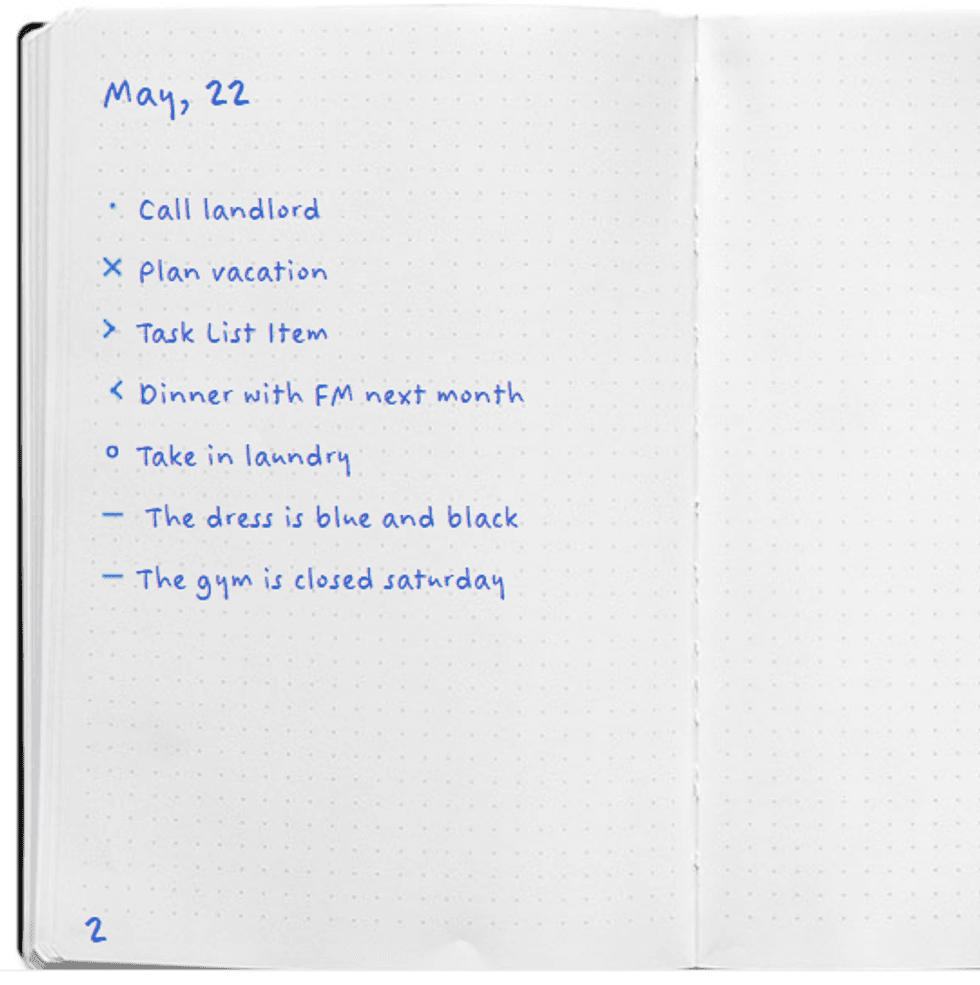 May, 22
· Call landlord
× Plan vacation
> Task List Item
< Dinner with FM next month
o Take in laundry
— The dress is blue and black
— The gym is closed saturday
2